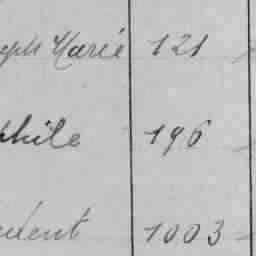 eph Marie 121
phile 196
udent 1003